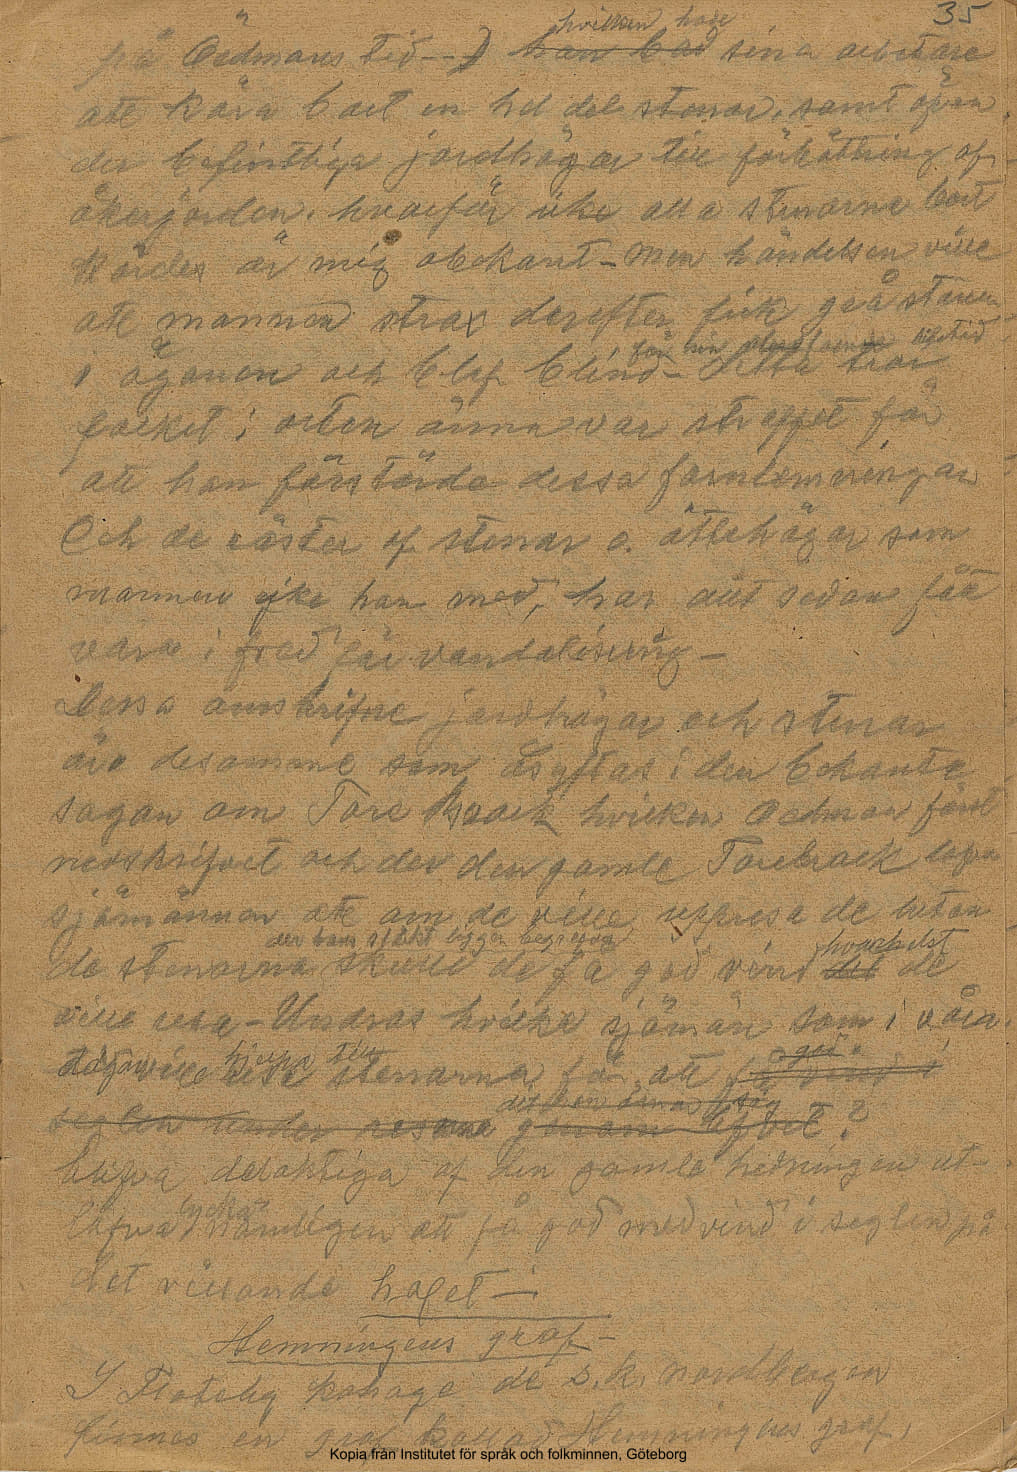 35
på Oedmans tid--) hvilken han bad sina arbetare
att köra bort en hel del stenar, samt äfven
der befintliga jordhögar till förbättring af
åkerjorden. hvarför icke alla stenarne bort
kördes är mig obekant - Men händelsen ville
att mannen strax derefter fick grå starren
i ögonen och blef blind - för sin lifstid Detta tror
folket i orten ännu var straffet för
att han förstörde dessa fornlemningar
Och de röster af stenar o. ättehögar som
mannen icke han med, har allt sedan fått
vara i fred för vandalisering -
Dessa omskrifne jordhögar och stenar
äro desamme som åsyftas i den bekanta
sagan om Tore Brack hvilken Oedman först
nedskrifvet och der den gamle Torebrack lofva
sjömännen att om de ville uppresa de lutan
de stenarna der hans släkt ligger begrafna skulle de få god vind hvarhelst de
ville resa - Undras hvilka sjömän som i våra
dagar ville hjelpa till resa stenarna för att få god vind i
seglen under resorna genom lifvet?
blifva delaktiga af den gamle hedningen ut-
lofva lycka nämligen att få god medvind i seglen på
det villande hafvet -
Hemningens graf -
I Flateby kohage de s.k. nordbergen
finnes en graf kallad Hemningens graf,
Kopia från Institutet för språk och folkminnen, Göteborg